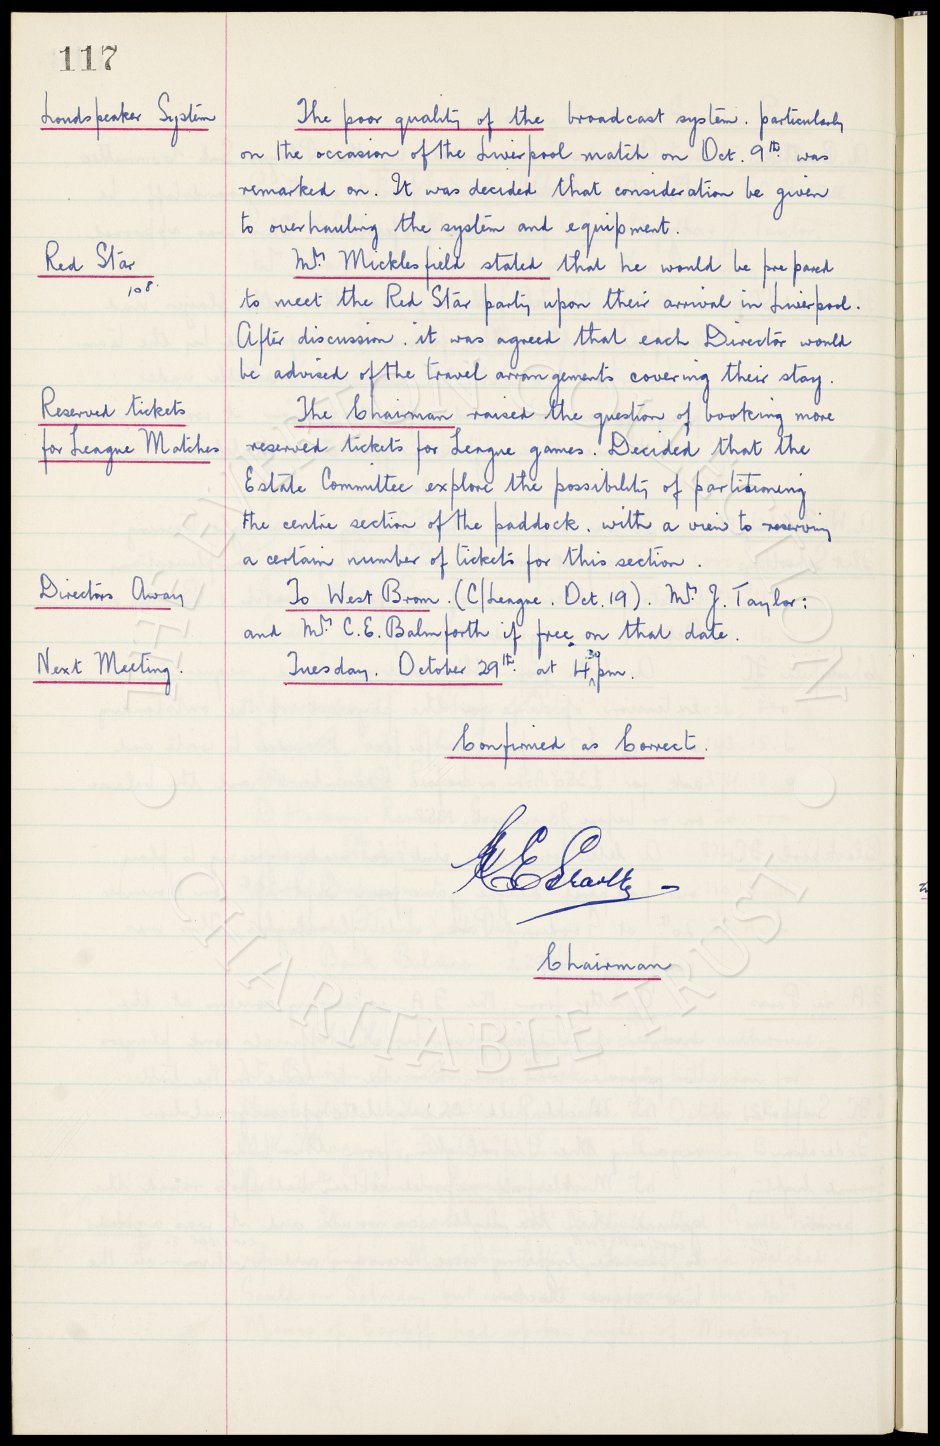 117
Loudspeaker System
The poor quality of the broadcast system. particularly
on the occasion of the Liverpool match on Oct. 9th. was
remarked on. It was decided that consideration be given
to overhauling the system and equipment.
Red Star
108.
Mr. Micklesfield stated that he would be prepared
to meet the Red Star party upon their arrival in Liverpool.
After discussion. it was agreed that each Director would
be advised of the travel arrangements covering their stay.
Reserved tickets
for League Matches
The Chairman raised the question of booking more
reserved tickets for League games. Decided that the
Estate Committee explore the possibility of partitioning
the centre section of the paddock. with a view to reserving
a certain number of tickets for this section.
Directors Away
To West Brom. (C/League. Oct. 19). Mr. J. Taylor:
and Mr. C.E. Balmforth if free on that date.
Next Meeting.
Tuesday. October 29th. at 4 30 pm.
Confirmed as Correct.
Chairman
THE EVERTON COLLECTION
CHARITABLE TRUST